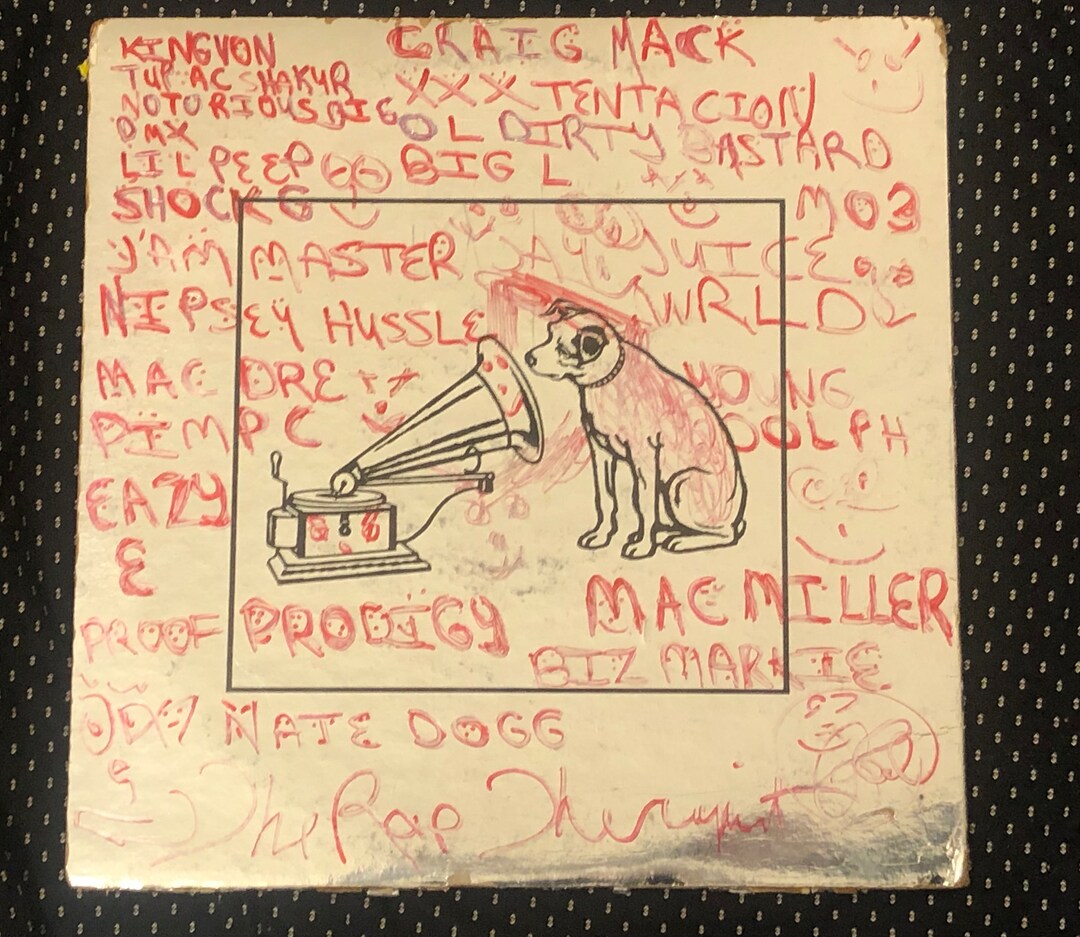 KINGVON
CRAIG MACK
TUPAC SHAKUR
XXXTENTACION
NOTORIOUS BIG
DMX
OL DIRTY BASTARD
LIL PEEP
BIG L
SHOCK G
MO3
JAM MASTER JAY
JUICE
WRLD
NIPSEY HUSSLE
MAC DRE
YOUNG
DOLPH
PIMP C
EAZY
E
MAC MILLER
PROOF
PRODIGY
BIZ MARKIE
NATE DOGG
The Rap Therapist